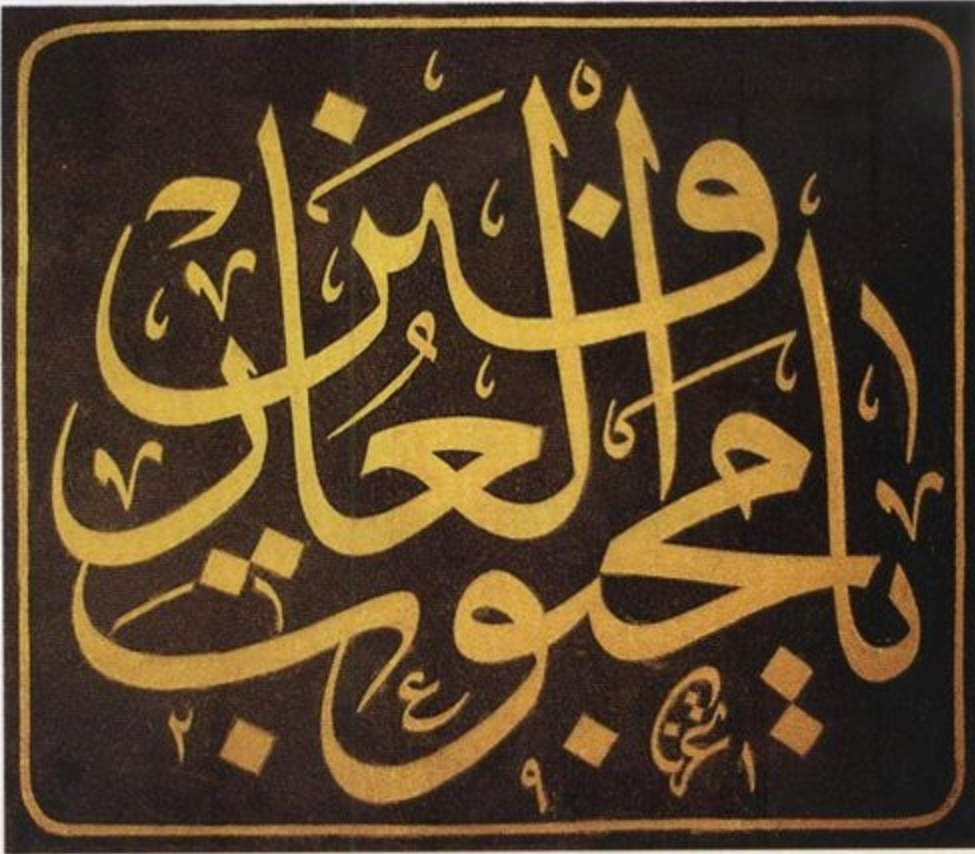 يا محبوب العارفين
١ ٩ ٢